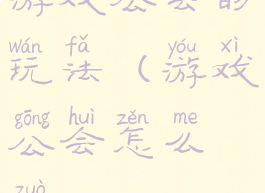 游戏公会的
wán fǎ yóu xì
玩法（游戏
gōng huì zěn me
公会怎么
zuò